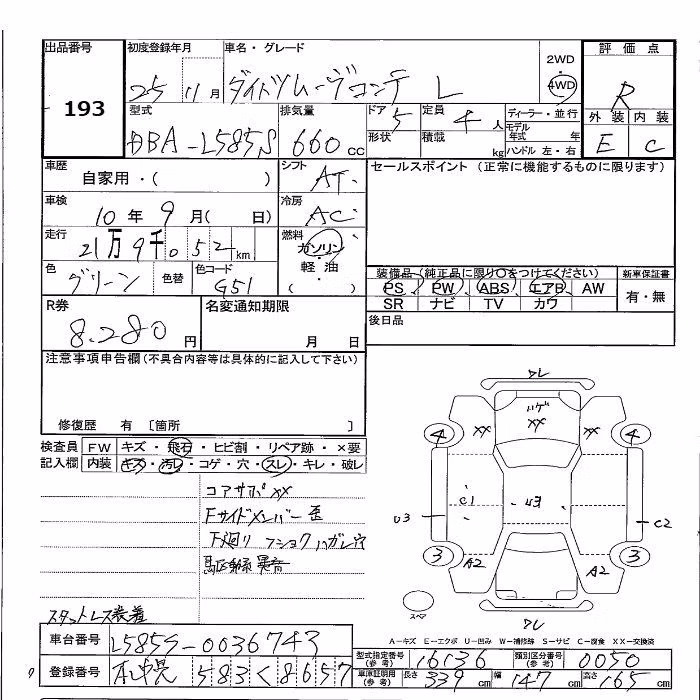 出品番号 初度登録年月 車名・グレード 評価点
193
25 11月 ダイハツムーヴコンテ L 2WD 4WD R
型式 排気量 ドア 5 定員 4人 ディーラー・並行 外装 内装
DBA-L585S 660cc 形状 積載 kg モデル年式 年 ハンドル 左・右 E C
車歴 シフト セールスポイント (正常に機能するものに限ります)
自家用・( ) AT
車検 冷房
10年9月( 日) AC
走行 燃料
21万9千052km ガソリン・軽油 ( )
色 色替 色コード 装備品(純正品に限り○をつけてください) 新車保証書
グリーン G51 PS PW ABS エアB AW 有・無
SR ナビ TV カワ
R券 名変通知期限 後日品
8.280円 月 日
注意事項申告欄(不具合内容等は具体的に記入して下さい)
修復歴 有 〔箇所 〕
検査員 FW キズ・飛石・ヒビ割・リペア跡・×要
記入欄 内装 キズ・汚レ・コゲ・穴・スレ・キレ・破レ
コアサポXX
Fサイドメンバー歪
下廻り フショク ハガレ ウ
駆動系異音
スタットレス装着
ワレ
ハゲ
XX XX XX
4 4
C1 U3
U3 C2
3 3
A2 A2
スペア
ワレ
A-キズ E-エクボ U-凹み W-補修跡 S-サビ C-腐食 XX-交換済
車台番号 L585S-0036743
型式指定番号(参考) 16136 類別区分番号(参考) 0050
登録番号 札幌 583 く 8657
車庫証明用(参考) 長さ 339cm 幅 147cm 高さ 165cm